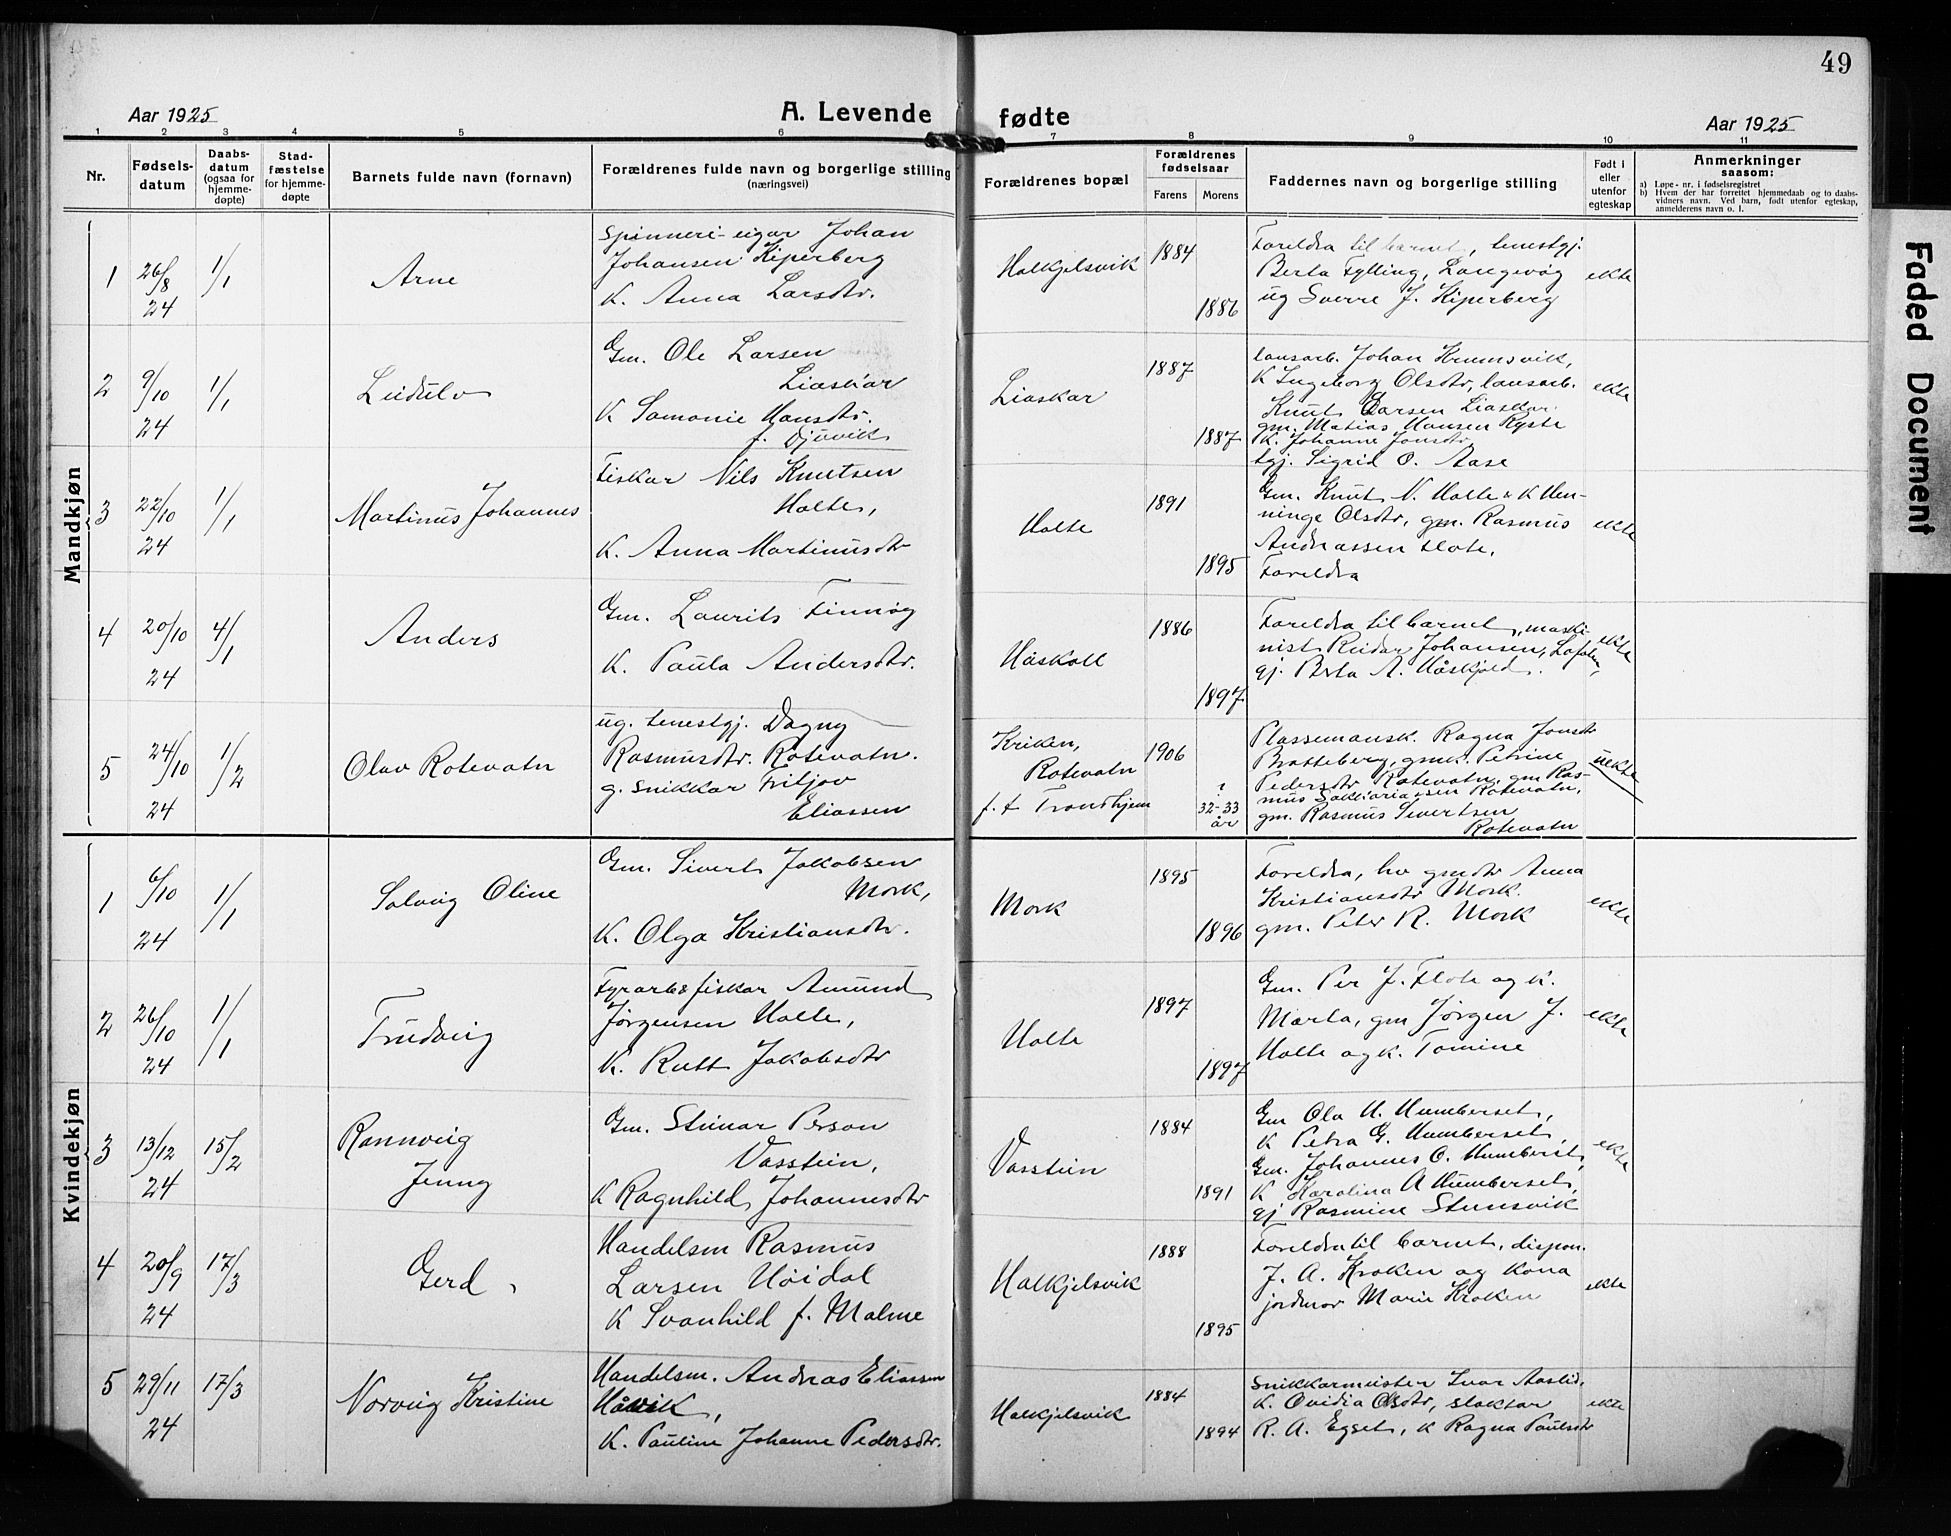 49
Aar 1925
A. Levende
fødte
Aar 1925
1 2 3 4 5 6 7 8 9 10 11
Nr.
Fødsels-
datum
Daabs-
datum
(ogsaa for
hjemme-
døpte)
Stad-
fæstelse
for hjemme-
døpte
Barnets fulde navn (fornavn)
Forældrenes fulde navn og borgerlige stilling
(næringsvei)
Forældrenes bopæl
Forældrenes
fødselsaar
Farens Morens
Faddernes navn og borgerlige stilling
Født i
eller
utenfor
egteskap
Anmerkninger
saasom:
a) Løpe-nr. i fødselsregistret
b) Hvem der har forrettet hjemmedaab og to daabs-
vidners navn. Ved barn, født utenfor egteskap,
anmelderens navn o. l.
Faded Document
Mandkjøn
1
26/8
24
1/1
Arne
Spinneri-eigar Johan
Johansen Kiperberg
K. Anna Larsdtr.
Halkjelsvik
1884
1886
Foreldra til barnet, tenestgj.
Berta Fylling, Langevåg
ug Sverre J. Kiperberg
ekte
2
9/10
24
1/1
Leidulv
Gm. Ole Larsen
Liaskar
K Samonie Hansdtr.
f. Djuvik
Liaskar
1887
1887
lausarb. Johan Krumsvik,
K Ingeborg Olsdtr, lausarb.
Knut Larsen Liaskar.
gm. Matias Hansen Ryste
K. Johanne Jonsdtr
tgj. Sigrid O. Aase
ekte
3
22/10
24
1/1
Martinus Johannes
Fiskar Nils Knutsen
Holte,
K. Anna Martinusdtr
Holte
1891
1895
Gm. Knut N. Holte & K Hen-
ninge Olsdtr, gm. Rasmus
Andreassen Flote,
Foreldra
ekte
4
20/10
24
4/1
Anders
Gm. Laurits Finnøy
K. Paula Andersdtr.
Håskoll
1886
1897
Foreldra til barnet, maski-
nist Reidar Johansen,
gj. Berta A. Håskjold.
ekte
5
24/10
24
1/2
Olav Rotevatn
ug. tenestgj. Dagny
Rasmusdtr. Rotevatn.
g. snikkar Fritjov
Eliassen
Kriken,
Rotevatn
f. t Trondhjem
1906
32-33
år
Plassemansk. Ragna Jonsdtr
Bratteberg, gmk. Petrine
Pedersdtr Rotevatn, gm Ras-
mus Sakkariassen Rotevatn,
gm. Rasmus Sivertsen
Rotevatn
uekte
Kvindekjøn
1
6/10
24
1/1
Solveig Oline
Gm. Sivert Jakobsen
Mork,
K. Olga Kristiansdtr.
Mork
1895
1896
Foreldra, hv gmdtr Anna
Kristiansdtr Mork.
gm. Peter R. Mork
ekte
2
26/10
24
1/1
Trudveig
Fyrarb & fiskar Amund
Jørgensen Holte,
K. Rutt Jakobsdtr
Holte
1897
1897
Gm. Per J. Flote og K.
Marta, gm Jørgen J.
Holte og K. Tomine
ekte
3
13/12
24
15/2
Rannveig
Jenny
Gm. Steinar Person
Vasstein,
K Ragnhild Johannesdtr
Vasstein
1884
1891
Gm Ola H. Humberset,
K Petra G. Humberset,
Gm. Johannes O. Humberset,
K Karolina A Humberset,
gj Rasmine Steinsvik
ekte
4
20/9
24
17/3
Gerd
Handelsm Rasmus
Larsen Høidal
K Svanhild f. Malme
Halkjelsvik
1888
1895
Foreldra til barnet, dispon.
J. A. Kroken og kona
jordmor Marie Kroken
ekte
5
29/11
24
17/3
Norveig Kristine
Handelsm. Andreas Eliassen
Håvik,
K. Pauline Johanne Pedersdtr.
Halkjelsvik
1884
1894
Snikkarmeister Ivar Aaslid,
K. Ovidia Olsdtr, slaktar
R. A. Egset, K Ragna Paulsdtr
ekte